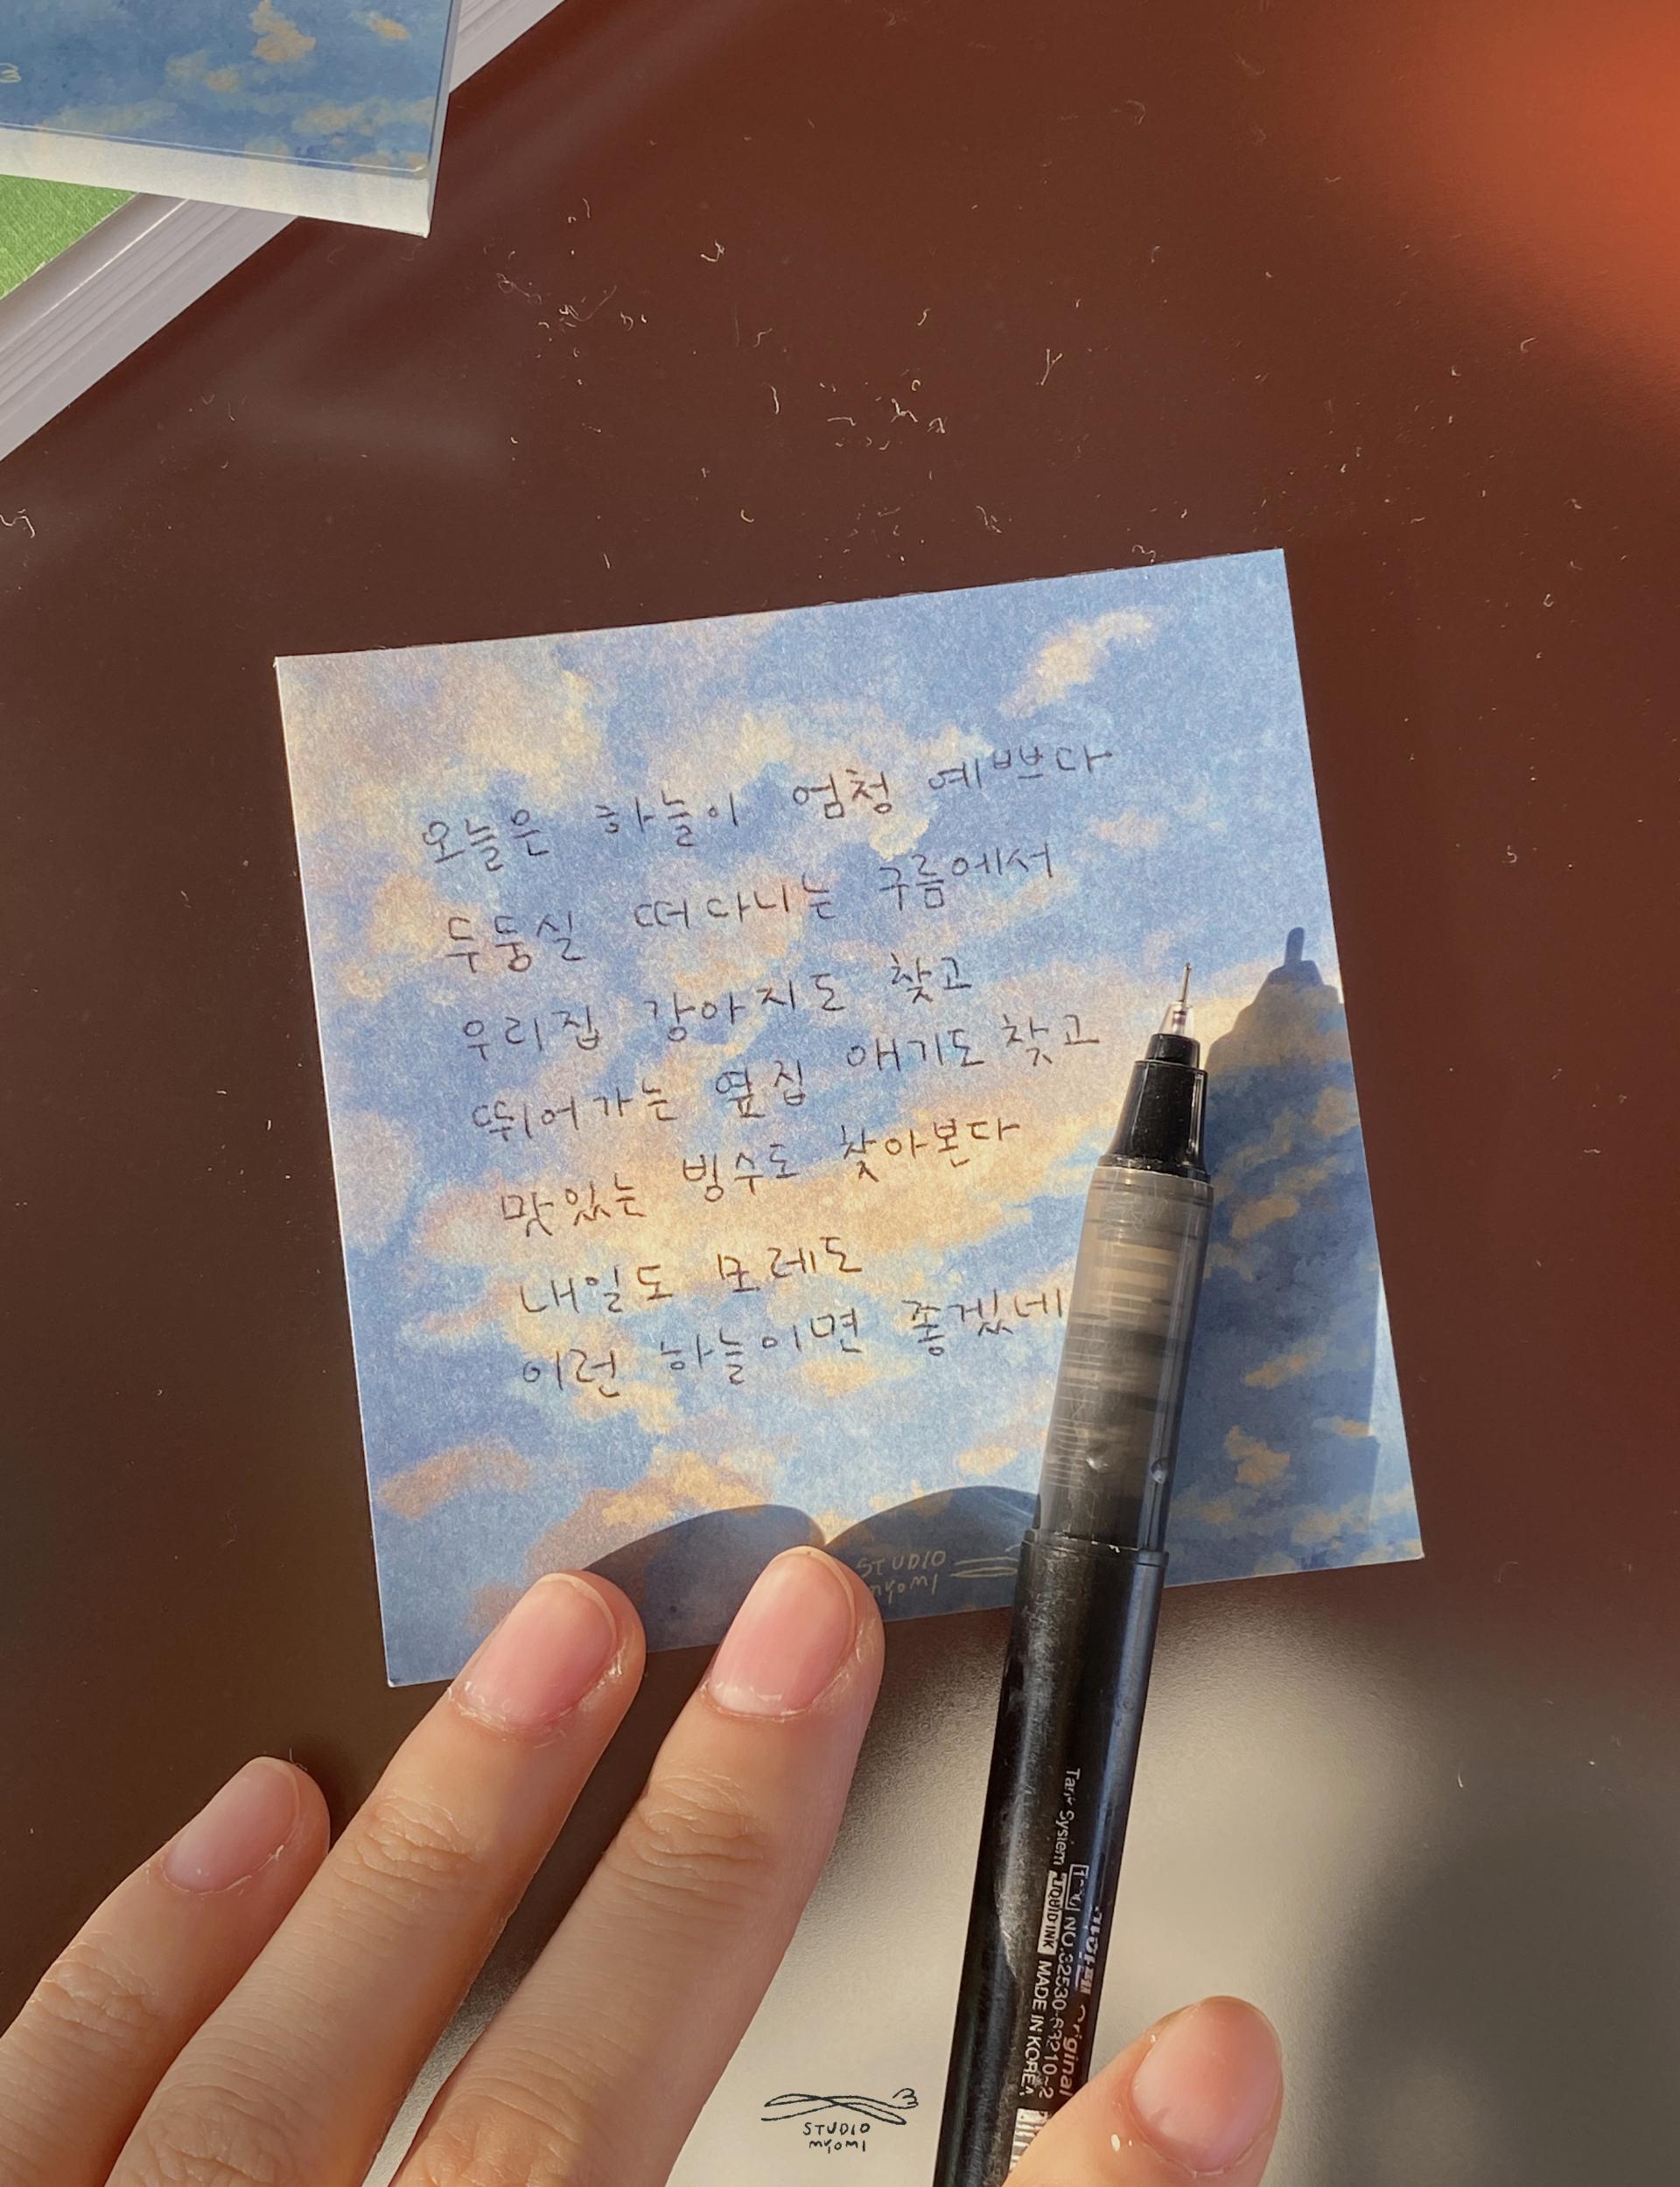 오늘은 하늘이 엄청 예쁘다
두둥실 떠다니는 구름에서
우리집 강아지도 찾고
뛰어가는 옆집 애기도 찾고
맛있는 빙수도 찾아본다
내일도 모레도
이런 하늘이면 좋겠네
STUDIO
myomi
Tank System LIQUID INK MADE IN KOREA
NO.32530-63210~2
Original
STUDIO
myomi